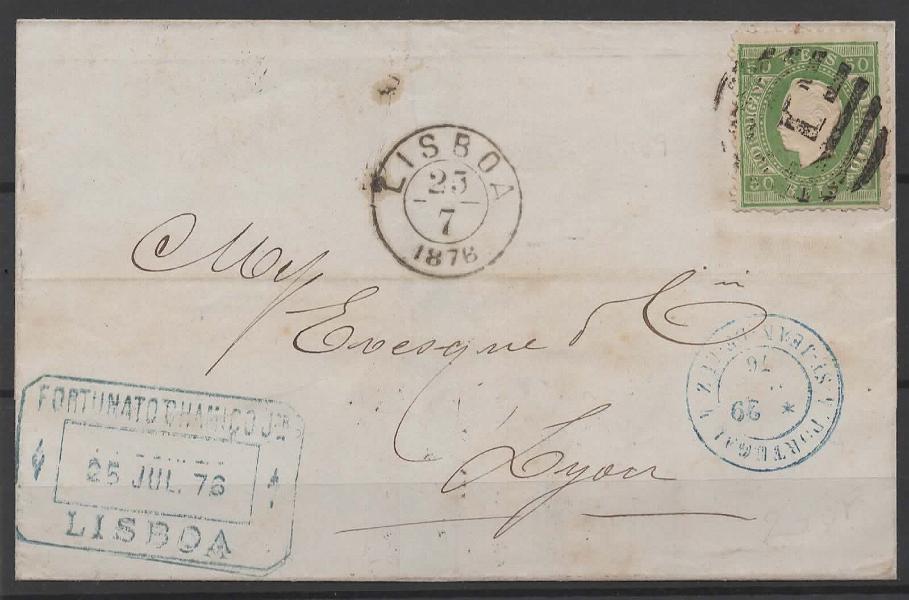 50 REIS 50
50 REIS 50
1
LISBOA
25
7
1876
Evesque & Cie
Lyon
PORTUGAL
ST-JEAN-DE-LUZ
29
76
FORTUNATO CHAMIÇO Jor
25 JUL. 76
LISBOA